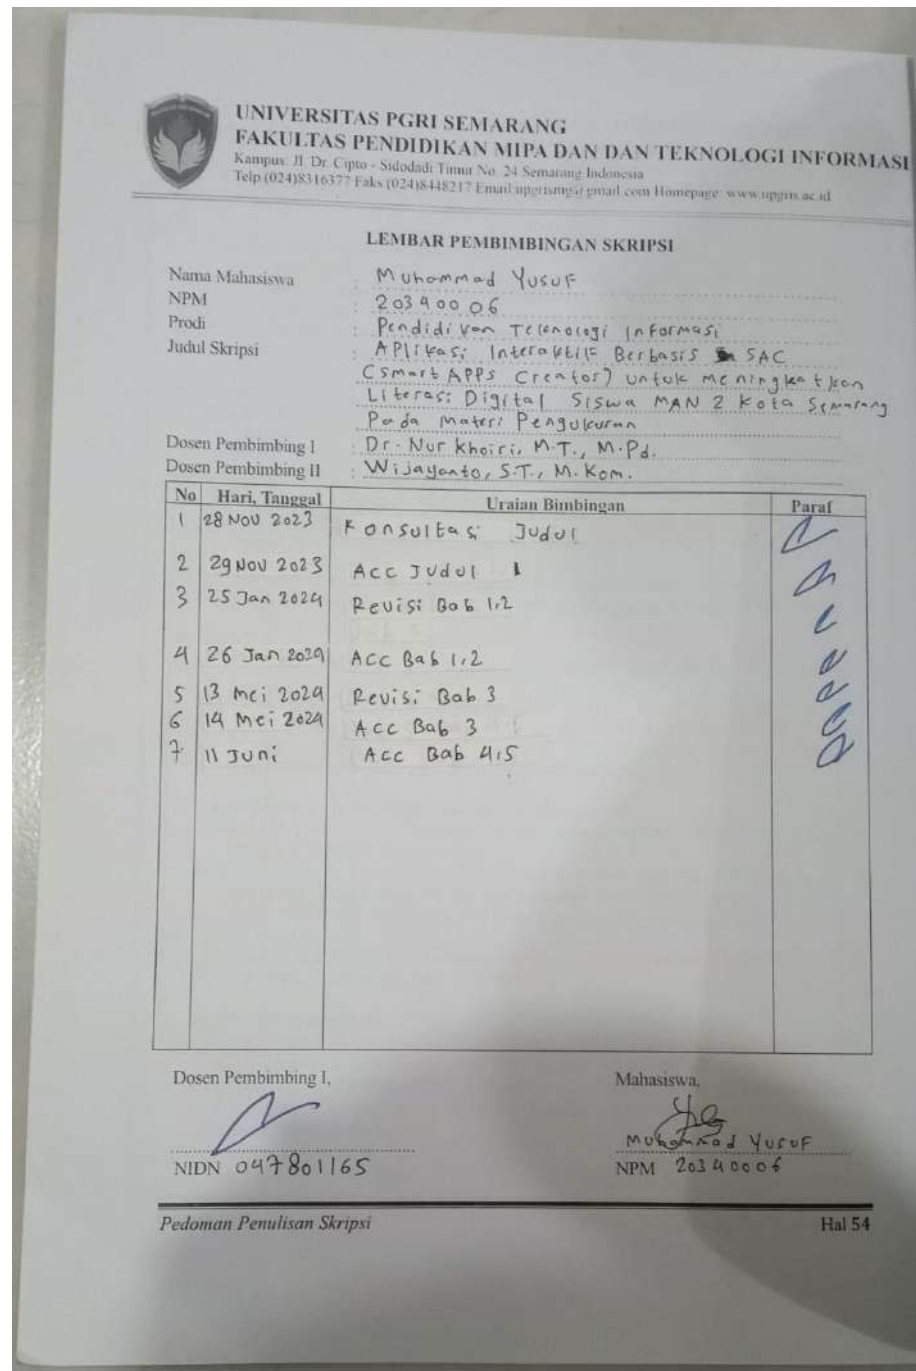 UNIVERSITAS PGRI SEMARANG
FAKULTAS PENDIDIKAN MIPA DAN DAN TEKNOLOGI INFORMASI
Kampus: Jl. Dr. Cipto - Sidodadi Timur No. 24 Semarang Indonesia
Telp.(024)8316377 Faks (024)8448217 Email upgrismg@gmail.com Homepage: www.upgris.ac.id
LEMBAR PEMBIMBINGAN SKRIPSI
Nama Mahasiswa : Muhammad Yusuf
NPM : 20340006
Prodi : Pendidikan Teknologi Informasi
Judul Skripsi : Aplikasi Interaktif Berbasis SAC
(Smart Apps Creator) untuk meningkatkan
Literasi Digital Siswa MAN 2 Kota Semarang
Pada Materi Pengukuran
Dosen Pembimbing I : Dr. Nur Khoiri, M.T., M.Pd.
Dosen Pembimbing II : Wijayanto, S.T., M.Kom.
No Hari, Tanggal Uraian Bimbingan Paraf
1 28 Nov 2023 Konsultasi Judul
2 29 Nov 2023 Acc Judul
3 25 Jan 2024 Revisi Bab 1,2
4 26 Jan 2024 Acc Bab 1,2
5 13 Mei 2024 Revisi Bab 3
6 14 Mei 2024 Acc Bab 3
7 11 Juni Acc Bab 4,5
Dosen Pembimbing I, Mahasiswa,
Muhammad Yusuf
NIDN 047801165 NPM 20340006
Pedoman Penulisan Skripsi Hal 54